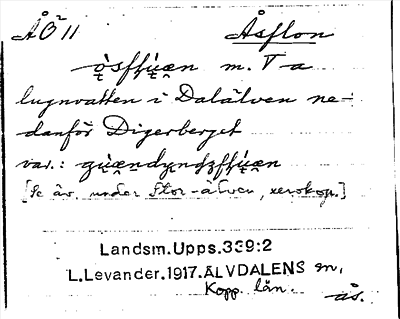 ÅÖ² 11 Åsflon
m. V a
lugnvatten i Dalälven ne-
danför Digerberget
var.:
[Se äv. under Stor-älven, xerokop.]
Landsm.Upps.339:2
L.Levander.1917.ÄLVDALENS sn,
Kopp. län.
ås.